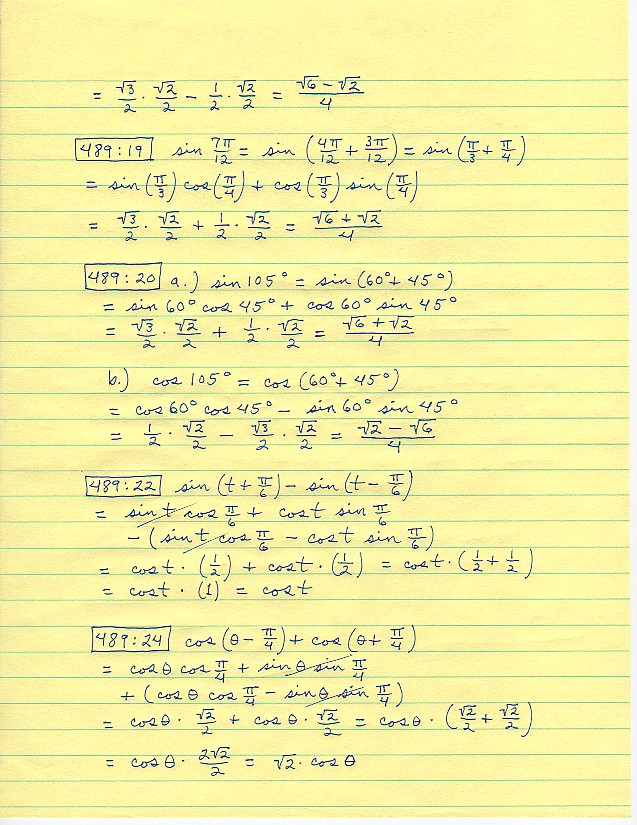 = √3/2 · √2/2 − 1/2 · √2/2 = (√6 − √2)/4
489:19 sin 7π/12 = sin (4π/12 + 3π/12) = sin (π/3 + π/4)
= sin (π/3) cos (π/4) + cos (π/3) sin (π/4)
= √3/2 · √2/2 + 1/2 · √2/2 = (√6 + √2)/4
489:20 a.) sin 105° = sin (60° + 45°)
= sin 60° cos 45° + cos 60° sin 45°
= √3/2 · √2/2 + 1/2 · √2/2 = (√6 + √2)/4
b.) cos 105° = cos (60° + 45°)
= cos 60° cos 45° − sin 60° sin 45°
= 1/2 · √2/2 − √3/2 · √2/2 = (√2 − √6)/4
489:22 sin (t + π/6) − sin (t − π/6)
= sin t cos π/6 + cos t sin π/6
− (sin t cos π/6 − cos t sin π/6)
= cos t · (1/2) + cos t · (1/2) = cos t · (1/2 + 1/2)
= cos t · (1) = cos t
489:24 cos (θ − π/4) + cos (θ + π/4)
= cos θ cos π/4 + sin θ sin π/4
+ (cos θ cos π/4 − sin θ sin π/4)
= cos θ · √2/2 + cos θ · √2/2 = cos θ · (√2/2 + √2/2)
= cos θ · 2√2/2 = √2 · cos θ